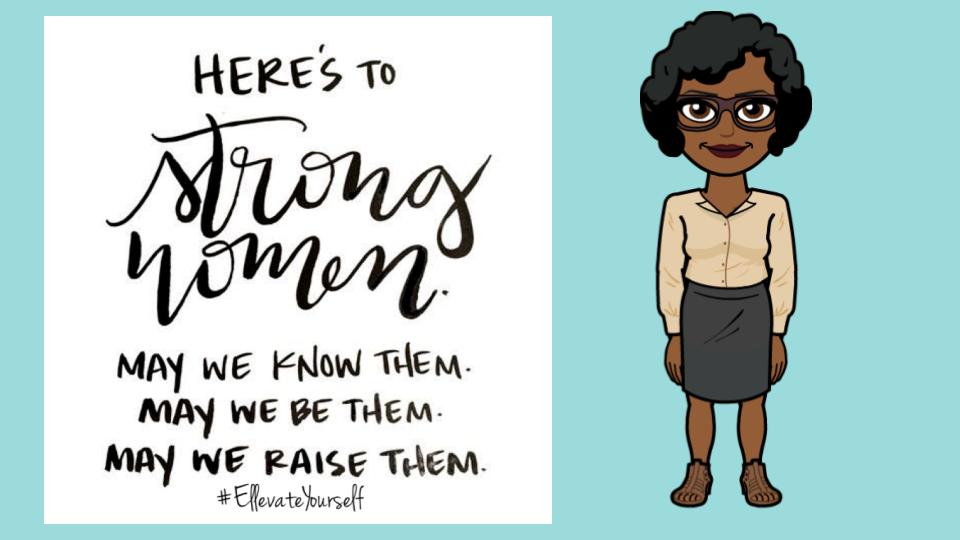 HERE'S TO
strong
women.
MAY WE KNOW THEM.
MAY WE BE THEM.
MAY WE RAISE THEM.
#EllevateYourself